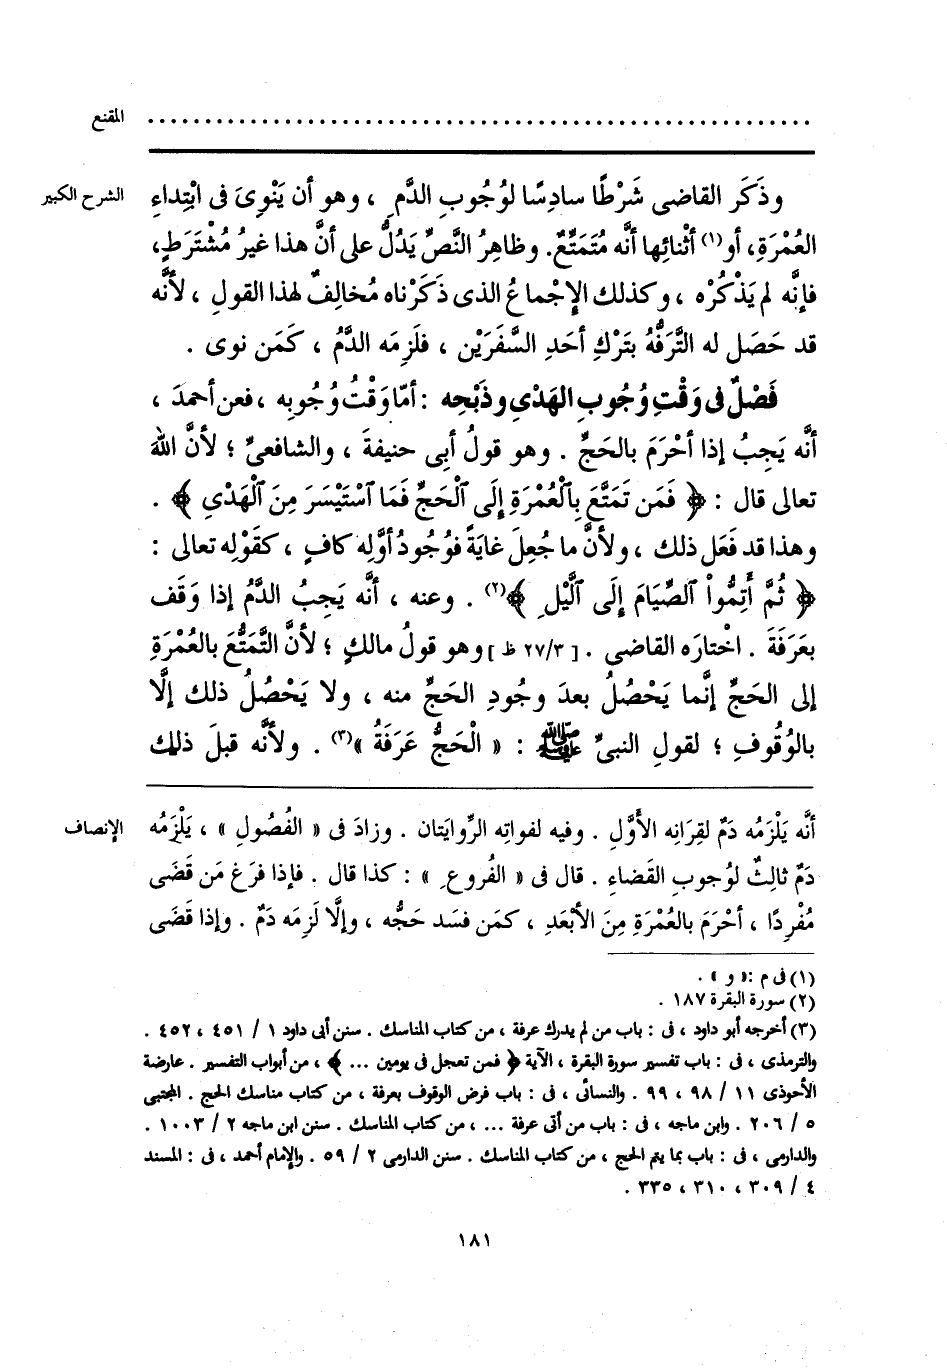 المقنع ............................................................
الشرح الكبير وذَكَر القاضى شَرْطًا سادِسًا لوُجُوبِ الدَّمِ ، وهو أن يَنْوِىَ فى ابْتِداءِ
العُمْرَةِ، أو(١) أثْنائِها أنَّه مُتَمَتِّعٌ. وظاهِرُ النَّصِّ يَدُلُّ على أنَّ هذا غيرُ مُشْتَرَطٍ،
فإنَّه لم يَذْكُرْه ، وكذلك الإِجْماعُ الذى ذَكَرْناه مُخالِفٌ لهذا القولِ ، لأنَّه
قد حَصَل له التَّرَفُّهُ بتَرْكِ أحَدِ السَّفَرَيْن ، فلَزِمَه الدَّمُ ، كَمَن نوى .
فَصْلٌ فى وَقْتِ وُجُوبِ الهَدْىِ وذَبْحِه : أمّا وَقْتُ وُجُوبِه ، فعن أحمدَ ،
أنَّه يَجِبُ إذا أحْرَمَ بالحَجِّ . وهو قولُ أبى حنيفةَ ، والشافعىِّ ؛ لأنَّ اللهَ
تعالى قال : ﴿ فَمَن تَمَتَّعَ بِٱلْعُمْرَةِ إِلَى ٱلْحَجِّ فَمَا ٱسْتَيْسَرَ مِنَ ٱلْهَدْىِ ﴾ .
وهذا قد فَعَل ذلك ، ولأنَّ ما جُعِلَ غايَةً فوُجُودُ أوَّلِه كافٍ ، كقَوْلِه تعالى :
﴿ ثُمَّ أَتِمُّواْ ٱلصِّيَامَ إِلَى ٱلَّيْلِ ﴾(٢) . وعنه ، أنَّه يَجِبُ الدَّمُ إذا وَقَف
بعَرَفَةَ . اخْتارَه القاضى . [ ٢٧/٣ ظ ] وهو قولُ مالكٍ ؛ لأنَّ التَّمَتُّعَ بالعُمْرَةِ
إلى الحَجِّ إنَّما يَحْصُلُ بعدَ وجُودِ الحَجِّ منه ، ولا يَحْصُلُ ذلك إلَّا
بالوُقُوفِ ؛ لقولِ النبىِّ ﷺ : « الْحَجُّ عَرَفَةُ »(٣) . ولأنَّه قبلَ ذلك
الإنصاف أنَّه يَلْزَمُه دَمٌ لقِرَانِه الأَوَّلِ . وفيه لفواتِه الرِّوايَتان . وزادَ فى « الفُصُولِ » ، يَلْزَمُه
دَمٌ ثالِثٌ لوُجوبِ القَضاءِ . قال فى « الفُروعِ » : كذا قال . فإذا فرَغ مَن قَضَى
مُفْرِدًا ، أحْرَمَ بالعُمْرَةِ مِنَ الأبْعَدِ ، كمَن فسَد حَجُّه ، وإلَّا لَزِمَه دَمٌ . وإذا قَضَى
(١) فى م : « و » .
(٢) سورة البقرة ١٨٧ .
(٣) أخرجه أبو داود ، فى : باب من لم يدرك عرفة ، من كتاب المناسك . سنن أبى داود ١ / ٤٥١ ، ٤٥٢ .
والترمذى ، فى : باب تفسير سورة البقرة ، الآية ﴿ فمن تعجل فى يومين ... ﴾ ، من أبواب التفسير . عارضة
الأحوذى ١١ / ٩٨ ، ٩٩ . والنسائى ، فى : باب فرض الوقوف بعرفة ، من كتاب مناسك الحج . المجتبى
٥ / ٢٠٦ . وابن ماجه ، فى : باب من أتى عرفة ... ، من كتاب المناسك . سنن ابن ماجه ٢ / ١٠٠٣ .
والدارمى ، فى : باب بما يتم الحج ، من كتاب المناسك . سنن الدارمى ٢ / ٥٩ . والإمام أحمد ، فى : المسند
٤ / ٣٠٩ ، ٣١٠ ، ٣٣٥ .
١٨١